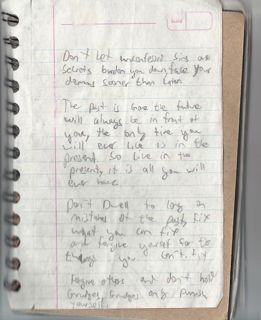 Don't Let unconfessed Sins or
Secrets burden you down face your
demons sooner than later.
The Past is Gone the future
will always be in front of
you, the only time you
will ever live is in the
Present. So Live in the
present, it is all you will
ever have.
Don't Dwell to long on
mistakes of the past, fix
what you can fix
and forgive yourself for the
things you can't fix
Forgive others and don't hold
Grudges, Grudges only punish
yourself.